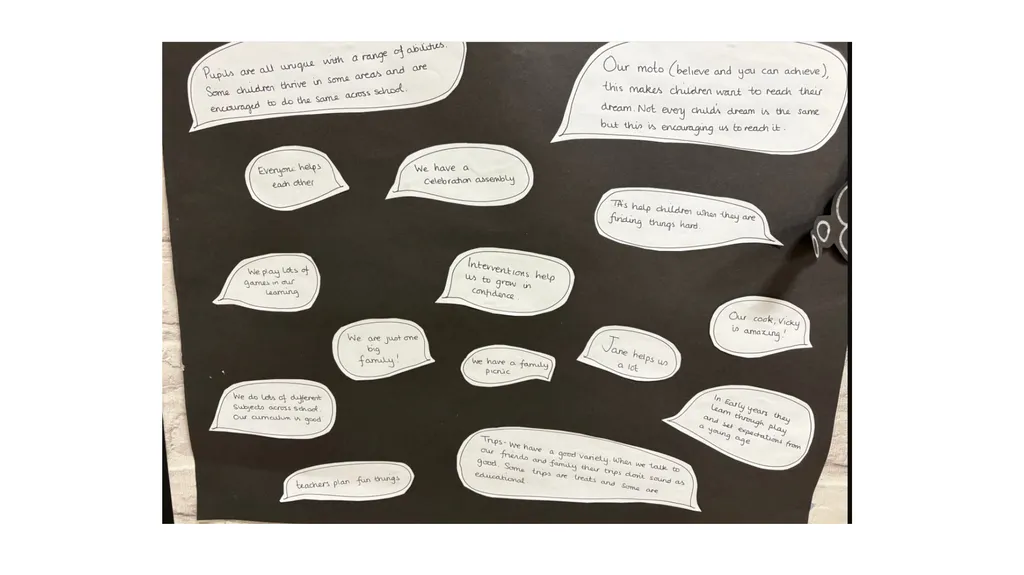 Pupils are all unique with a range of abilities.
Some children thrive in some areas and are
encouraged to do the same across school.
Our moto (believe and you can achieve),
this makes children want to reach their
dream. Not every child's dream is the same
but this is encouraging us to reach it.
Everyone helps
each other
We have a
celebration assembly
TA's help children when they are
finding things hard.
We play lots of
games in our
learning
Interventions help
us to grow in
confidence
Our cook, Vicky
is amazing!
We are just one
big
family!
We have a family
picnic
Jane helps us
a lot
We do lots of different
subjects across school.
Our curriculum is good.
In Early years they
learn through play
and set expectations from
a young age
Trips - We have a good variety. When we talk to
our friends and family their trips don't sound as
good. Some trips are treats and some are
educational.
teachers plan fun things